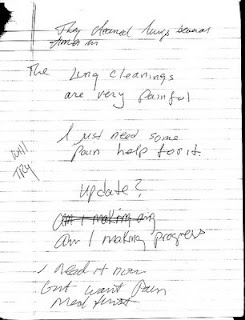 They cleaned lungs several
times in
The Lung cleanings
are very painful
I just need some
pain help for it.
Will
TRY
update?
Am I making any
Am I making progress
I need it now
but want pain
meds first